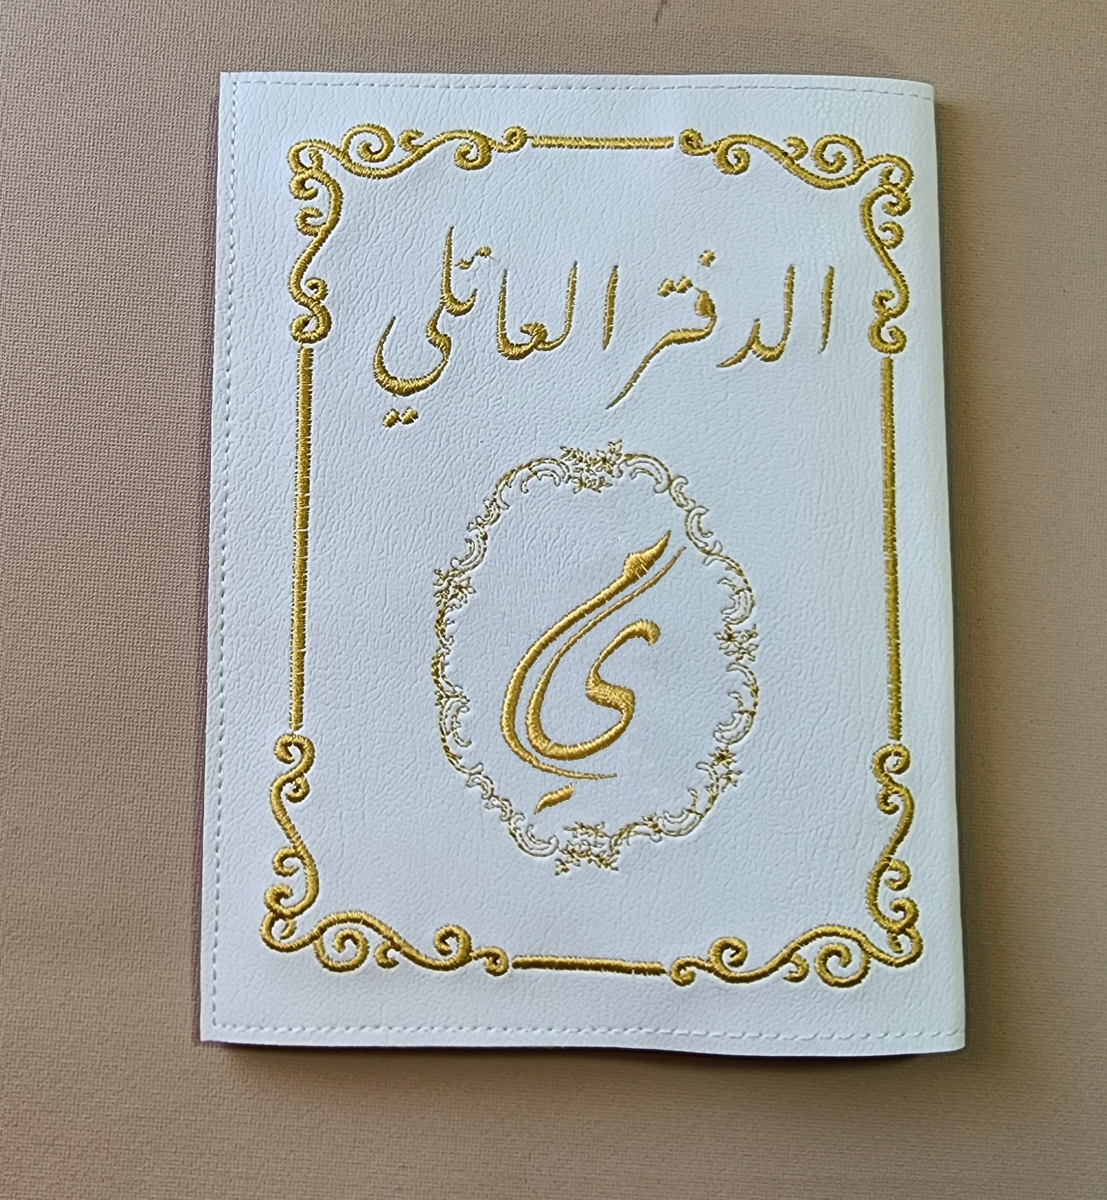 الدفتر العائلي
ي